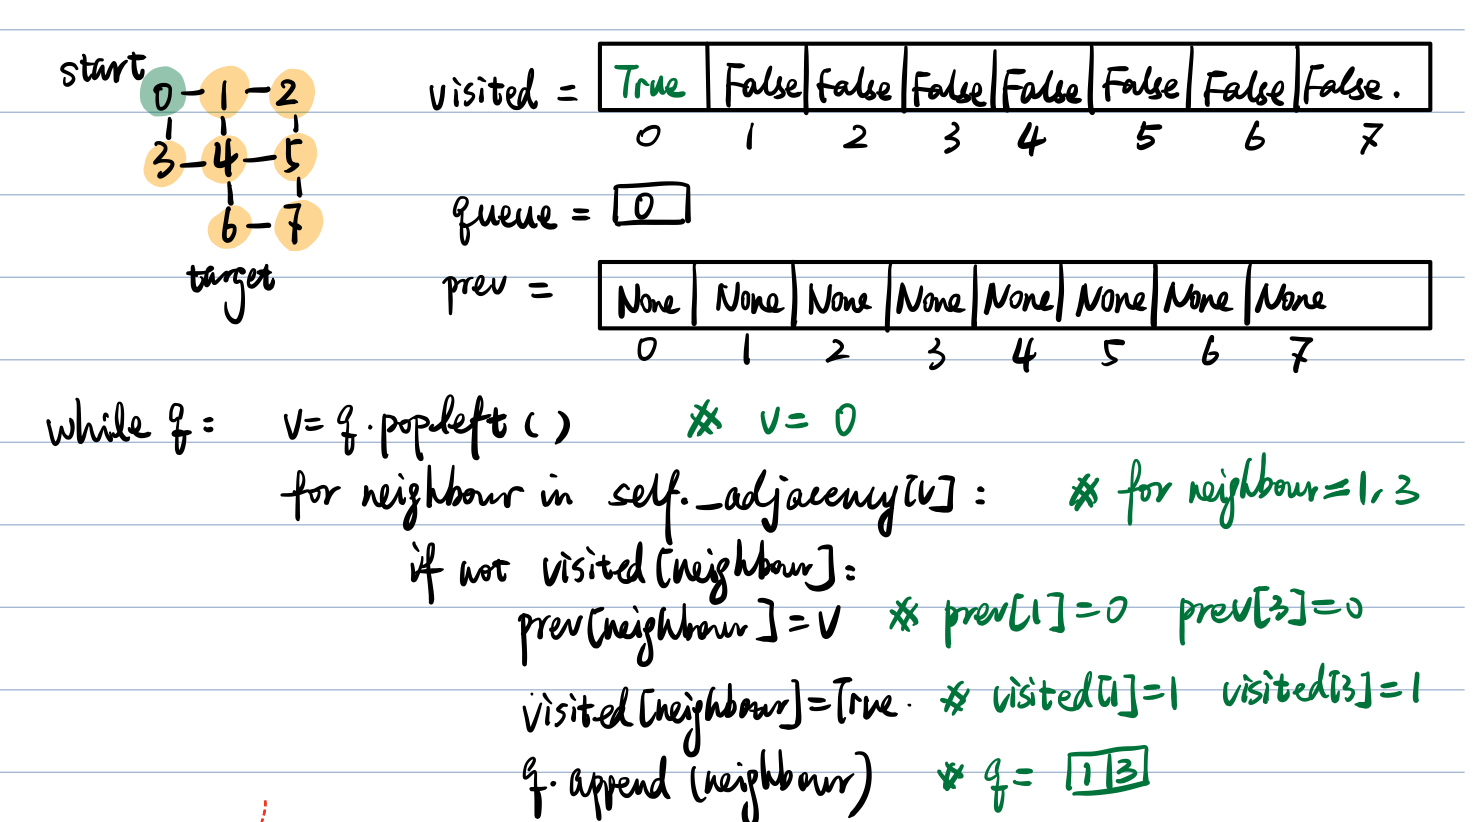 start
0 - 1 - 2
3 - 4 - 5
6 - 7
target
visited = True False False False False False False False.
0 1 2 3 4 5 6 7
queue = 0
prev = None None None None None None None None
0 1 2 3 4 5 6 7
while q: v= q.popleft() # v= 0
for neighbour in self._adjacency[v]: # for neighbour=1, 3
if not visited[neighbour]:
prev[neighbour]=v # prev[1]=0 prev[3]=0
visited[neighbour]=True. # visited[1]=1 visited[3]=1
q.append(neighbour) # q= 1 3